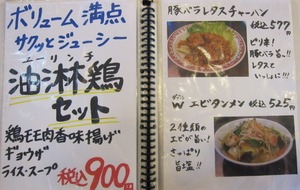 ボリューム満点
サクッとジューシー
ユーリンチ
油淋鶏
セット
鶏モモ肉香味揚げ
ギョウザ
ライス・スープ
税込900円
豚バラレタスチャーハン
税込577
ピリ辛!
豚バラ旨!!
レタスで
いっしょに!!!
W エビタンメン 税込525
2種類の
エビが旨い!
さっぱり
旨塩!!